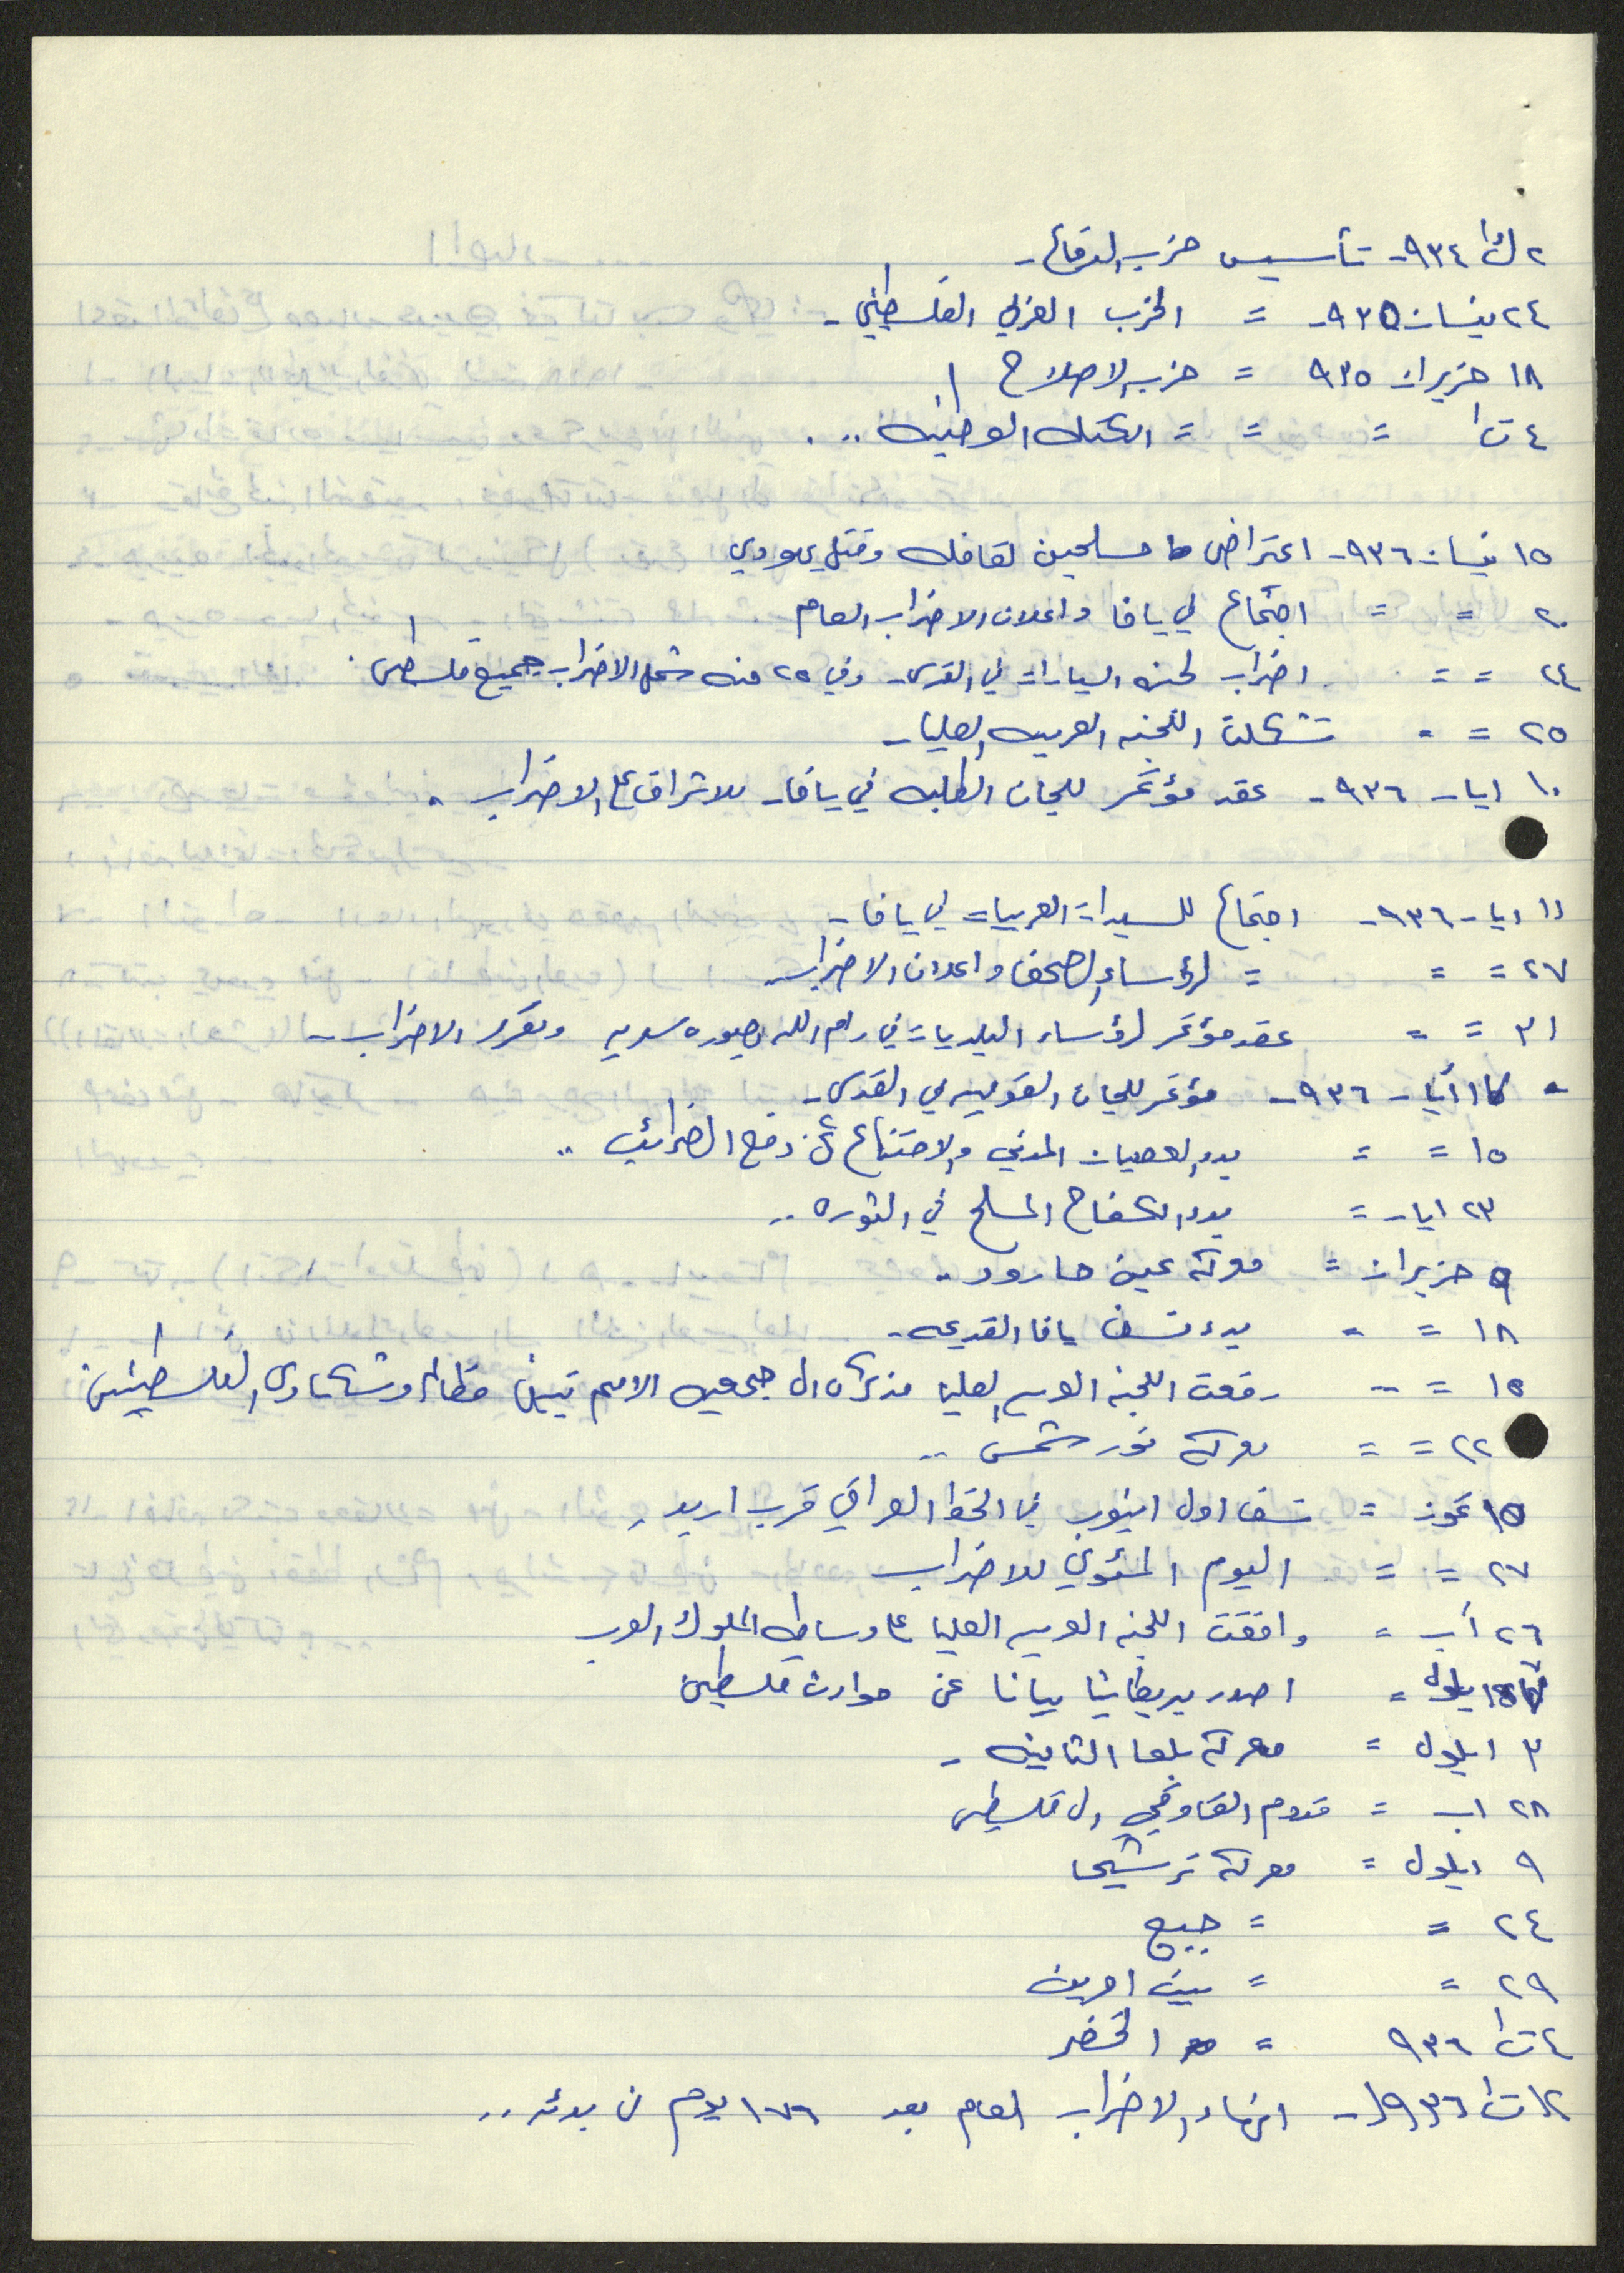 ٢ ك١ ٩٣٤- تأسيس حزب الدفاع -
٢٤ نيسان ٩٣٥- = الحزب العربي الفلسطيني -
١٨ حزيران ٩٣٥ = حزب الاصلاح
٤ ت١ = = = الكتله الوطنيه ..
١٥ نيسان ٩٣٦- اعتراض مسلحين لقافله وقتل يهودي
٢٠ = = اجتماع في يافا واعلان الاضراب العام
٢٤ = = اضراب لجنه السيارات في القدس - وفي ٢٥ منه شمل الاضراب جميع فلسطين .
٢٥ = = تشكلت اللجنه العربيه العليا -
١٠ ايار ٩٣٦- عقد مؤتمر للجان الطلبه في يافا - للاشراف على الاضراب .
١١ ايار ٩٣٦- اجتماع للسيدات العربيات في يافا -
٢٧ = = = لرؤساء الصحف واعلان الاضراب
٣١ = = عقد مؤتمر لرؤساء البلديات في رام الله بصوره سريه وتقرر الاضراب -
ايار ٩٣٦- مؤتمر للجان القوميه في القدس -
١٥ = = بدء العصيان المدني والامتناع عن دفع الضرائب ..
٢٣ ايار = بدء الكفاح المسلح في الثوره ..
٩ حزيران = معركة عين حارود ..
١٨ = = بدء نسف يافا القديمه -
١٥ = = رفعت اللجنه العربيه العليا مذكره الى جمعيه الامم تبين مظالم وشكاوى الفلسطينين
٢٢ = = معركة نور شمس ..
١٥ تموز = نسف اول انبوب في الخط العراقي قرب اربد
٢٧ = = اليوم المئوي للاضراب
٢٦ آب = وافقت اللجنه العربيه العليا على وساطه الملوك العرب
ايلول = اصدر بريطانيا بيانا عن حوادث فلسطين
٣ ايلول = معركة بلعا الثانيه -
٢٨ اب = قدوم القاوقجي الى فلسطين
٩ ايلول = معركة ترشيحا
٢٤ = = جبع
٢٩ = = بيت امرين
٤ ت١ ٩٣٦ = الخضر
١٢ ت١ ٩٣٦- انهاء الاضراب العام بعد ١٧٦ يوم من بدئه ..